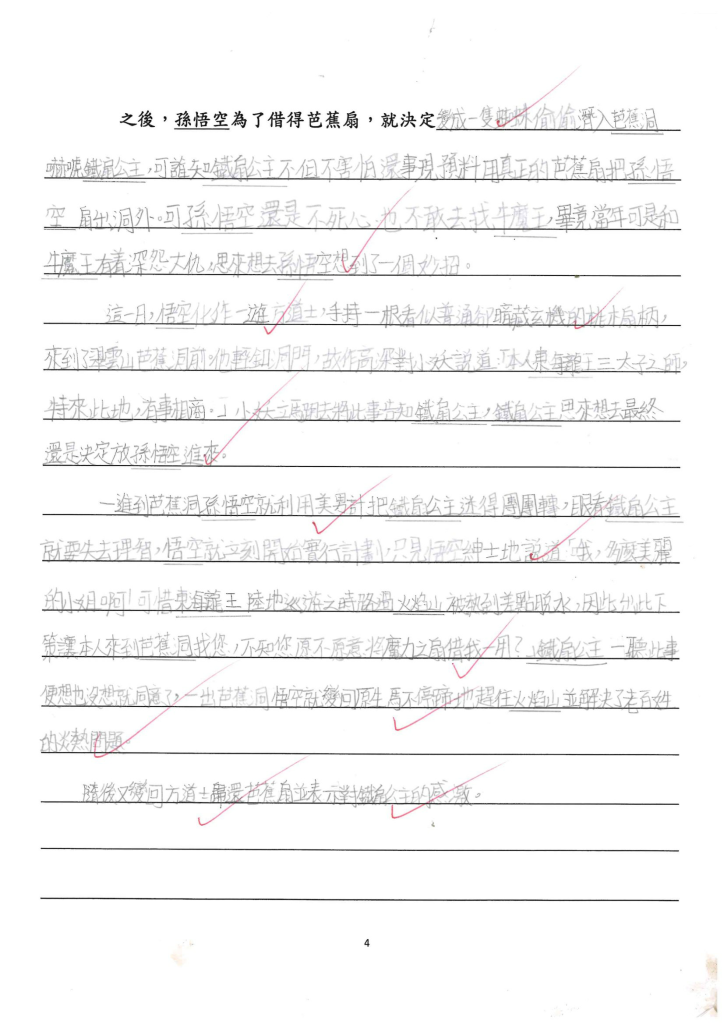 之後，孫悟空為了借得芭蕉扇，就決定變成一隻蜘蛛偷偷潛入芭蕉洞
嚇唬鐵扇公主，可誰知鐵扇公主不但不害怕還事現預料用真正的芭蕉扇把孫悟
空扇出洞外。可孫悟空還是不死心也不敢去找牛魔王，畢竟當年可是和
牛魔王有着深怨大仇，思來想去孫悟空想到了一個妙招。
這一日，悟空化作一遊方道士，手持一根看似普通卻暗藏玄機的桃木扇柄，
來到了翠雲山芭蕉洞前，他輕叩洞門，故作高深對小妖說道：「本人東海龍王三太子之師，
特來此地，有事相商。」小妖立馬跑去將此事告知鐵扇公主，鐵扇公主思來想去最終
還是決定放孫悟空進來。
一進到芭蕉洞孫悟空就利用美男計把鐵扇公主迷得團團轉，眼看鐵扇公主
就要失去理智，悟空就立刻開始實行計劃，只見悟空紳士地說道「哦，多麼美麗
的小姐啊！可惜東海龍王陸地巡遊之時路過火焰山被熱到差點脫水，因此出此下
策讓本人來到芭蕉洞找您，不知您願不願意將魔力之扇借我一用？」鐵扇公主一聽此事
便想也沒想就同意了，一出芭蕉洞悟空就變回原生馬不停蹄地趕住火焰山並解決了老百姓
的炎熱問題。
隨後又變回方道士歸還芭蕉扇並表示對鐵扇公主的感激。
4